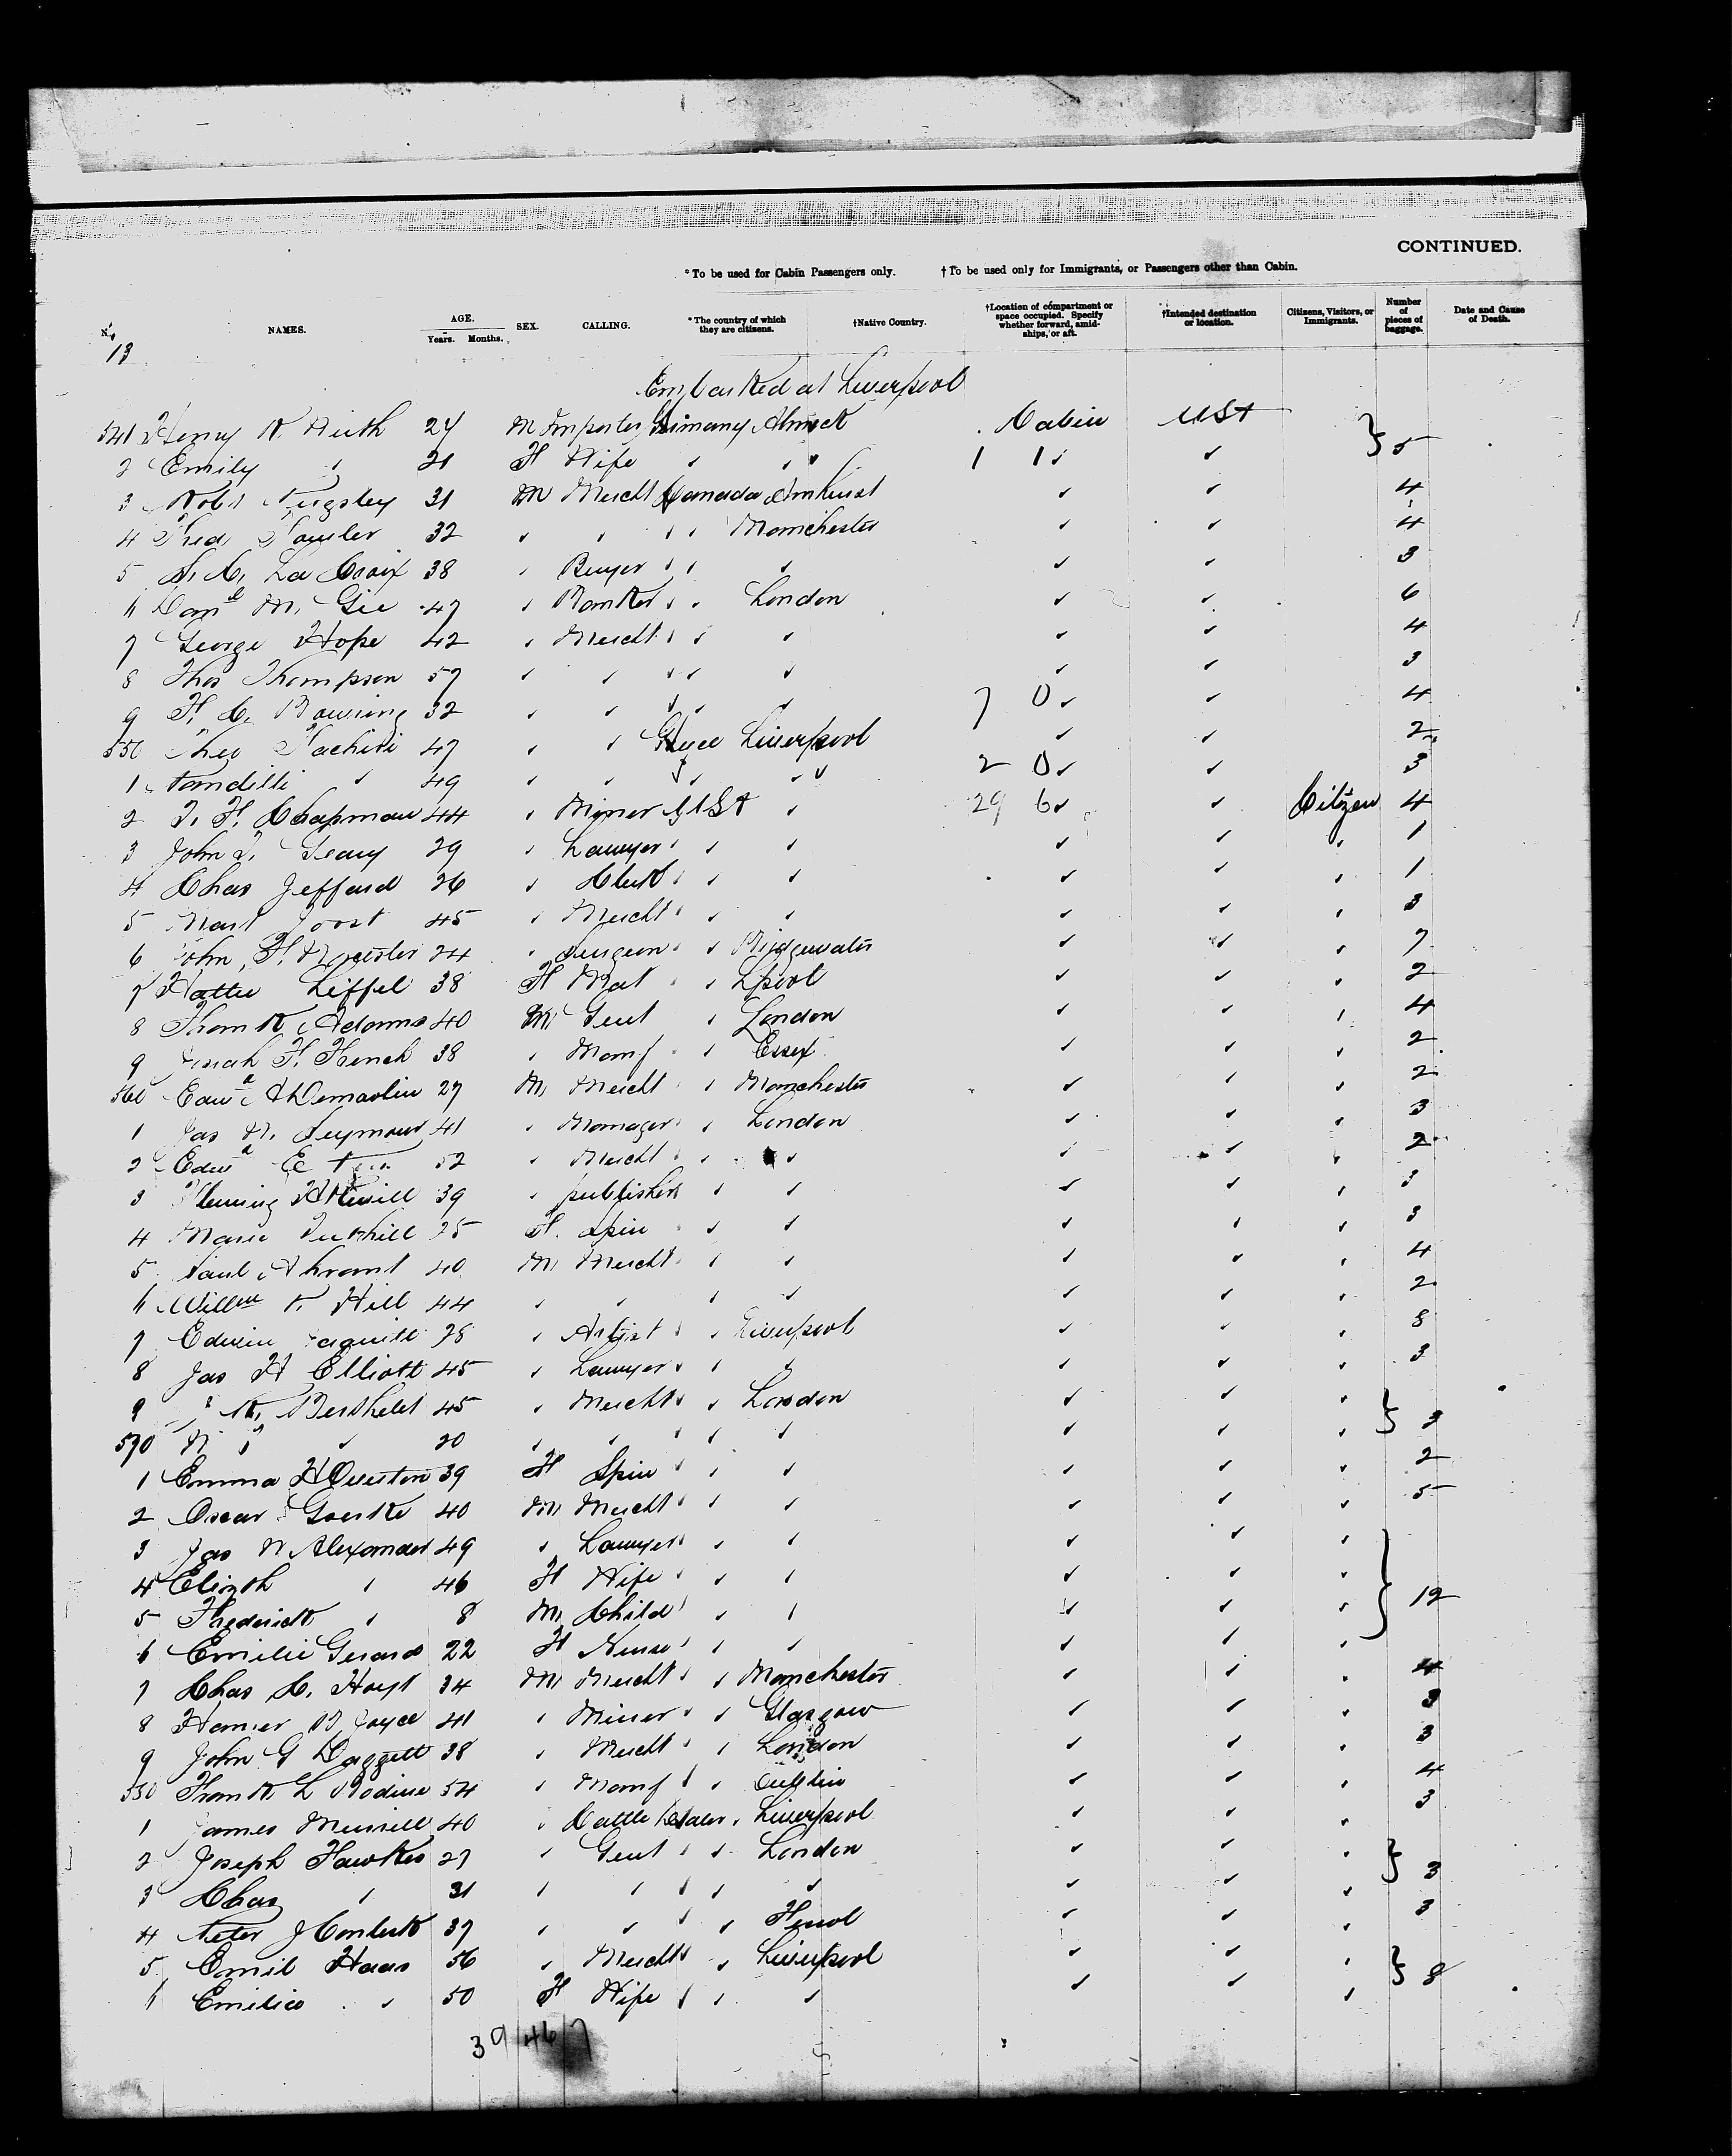 CONTINUED.
*To be used for Cabin Passengers only. †To be used only for Immigrants, or Passengers other than Cabin.
No. NAMES. AGE. Years. Months. SEX. CALLING. *The country of which they are citizens. †Native Country. †Location of compartment or space occupied. Specify whether forward, amidships, or aft. †Intended destination or location. Citizens, Visitors, or Immigrants. Number of pieces of baggage. Date and Cause of Death.
13
Embarked at Liverpool
541 Henry 24 M Importer Cabin USA 5
2 Emily " 21 F Wife " 1 1 "
3 Robt Pugsley 31 M Mercht Canada Amhurst " " 4
4 Fred Fowler 32 " " " " Manchester " " 4
5 La Croix 38 " Buyer " " " " " 3
6 Danl M. Gie 47 " Banker " " London " " 6
7 George Hope 42 " Mercht " " " " " 4
8 Thos Thompson 57 " " " " " " " 3
9 F. C. Bowring 32 " " " " " 7 0 " " 4
550 Theo 47 " " Liverpool " " 2
1 " 49 " " " " " 2 0 " " 3
2 T. F. Chapman 44 " Miner USA " 29 6 " " Citizen 4
3 John T. Geary 29 " Lawyer " " " " " " 1
4 Chas Jeffard 26 " Clerk " " " " " " 1
5 Joost 45 " Mercht " " " " " " 3
6 John F. 24 " Surgeon " " Bridgewater " " " 7
7 Hattie Leffel 38 F " Lpool " " " 2
8 Frank Adams 40 M Gent " London " " " 4
9 F. French 38 " Manf " " Essex " " " 2
560 Edwd A Demartin 27 M Mercht " " Manchester " " " 2
1 Jas Seymour 41 " Manager " " London " " " 3
2 Edwd E 52 " Mercht " " " " " " 2
3 Fleming H Revill 39 " publisher " " " " " 3
4 Marie Tuthill 25 F. Spin " " " " " " 3
5 Paul Ahrant 40 M Mercht " " " " " " 4
6 Willm Hill 44 " " " " " " " 2
7 Edwin 28 " Artist " " Liverpool " " " 8
8 Jas H Elliott 45 " Lawyer " " " " " " 3
9 Berthelet 45 " Mercht " " London " " " 3
570 " 20 " " " " " " " "
1 Emma H Overton 39 F Spin " " " " " " 2
2 Oscar Goerke 40 M Mercht " " " " " " 5
3 Jas W Alexander 49 " Lawyer " " " " " "
4 Elizth " 46 F Wife " " " " " " 12
5 Frederick " 8 M Child " " " " " "
6 Emilie Gerard 22 F Nurse " " " " " "
7 Chas C. Hoyt 34 M Mercht " " Manchester " " " 4
8 Homer B Joyce 41 " Miner " " Glasgow " " " 3
9 John G Daggett 38 " Mercht " " London " " " 3
580 Frank L Bodine 54 " Manf " " Dublin " " " 4
1 James Merrill 40 " Cattle Dealer " Liverpool " " " 3
2 Joseph Fawkes 27 " Gent " " London " " " 3
3 Chas " 31 " " " " " " " "
4 Peter J 37 " " " " " " " 3
5 Emil Haas 56 " Mercht " " Liverpool " " " 8
6 Emilie " 50 F Wife " " " " " "
39 46 7